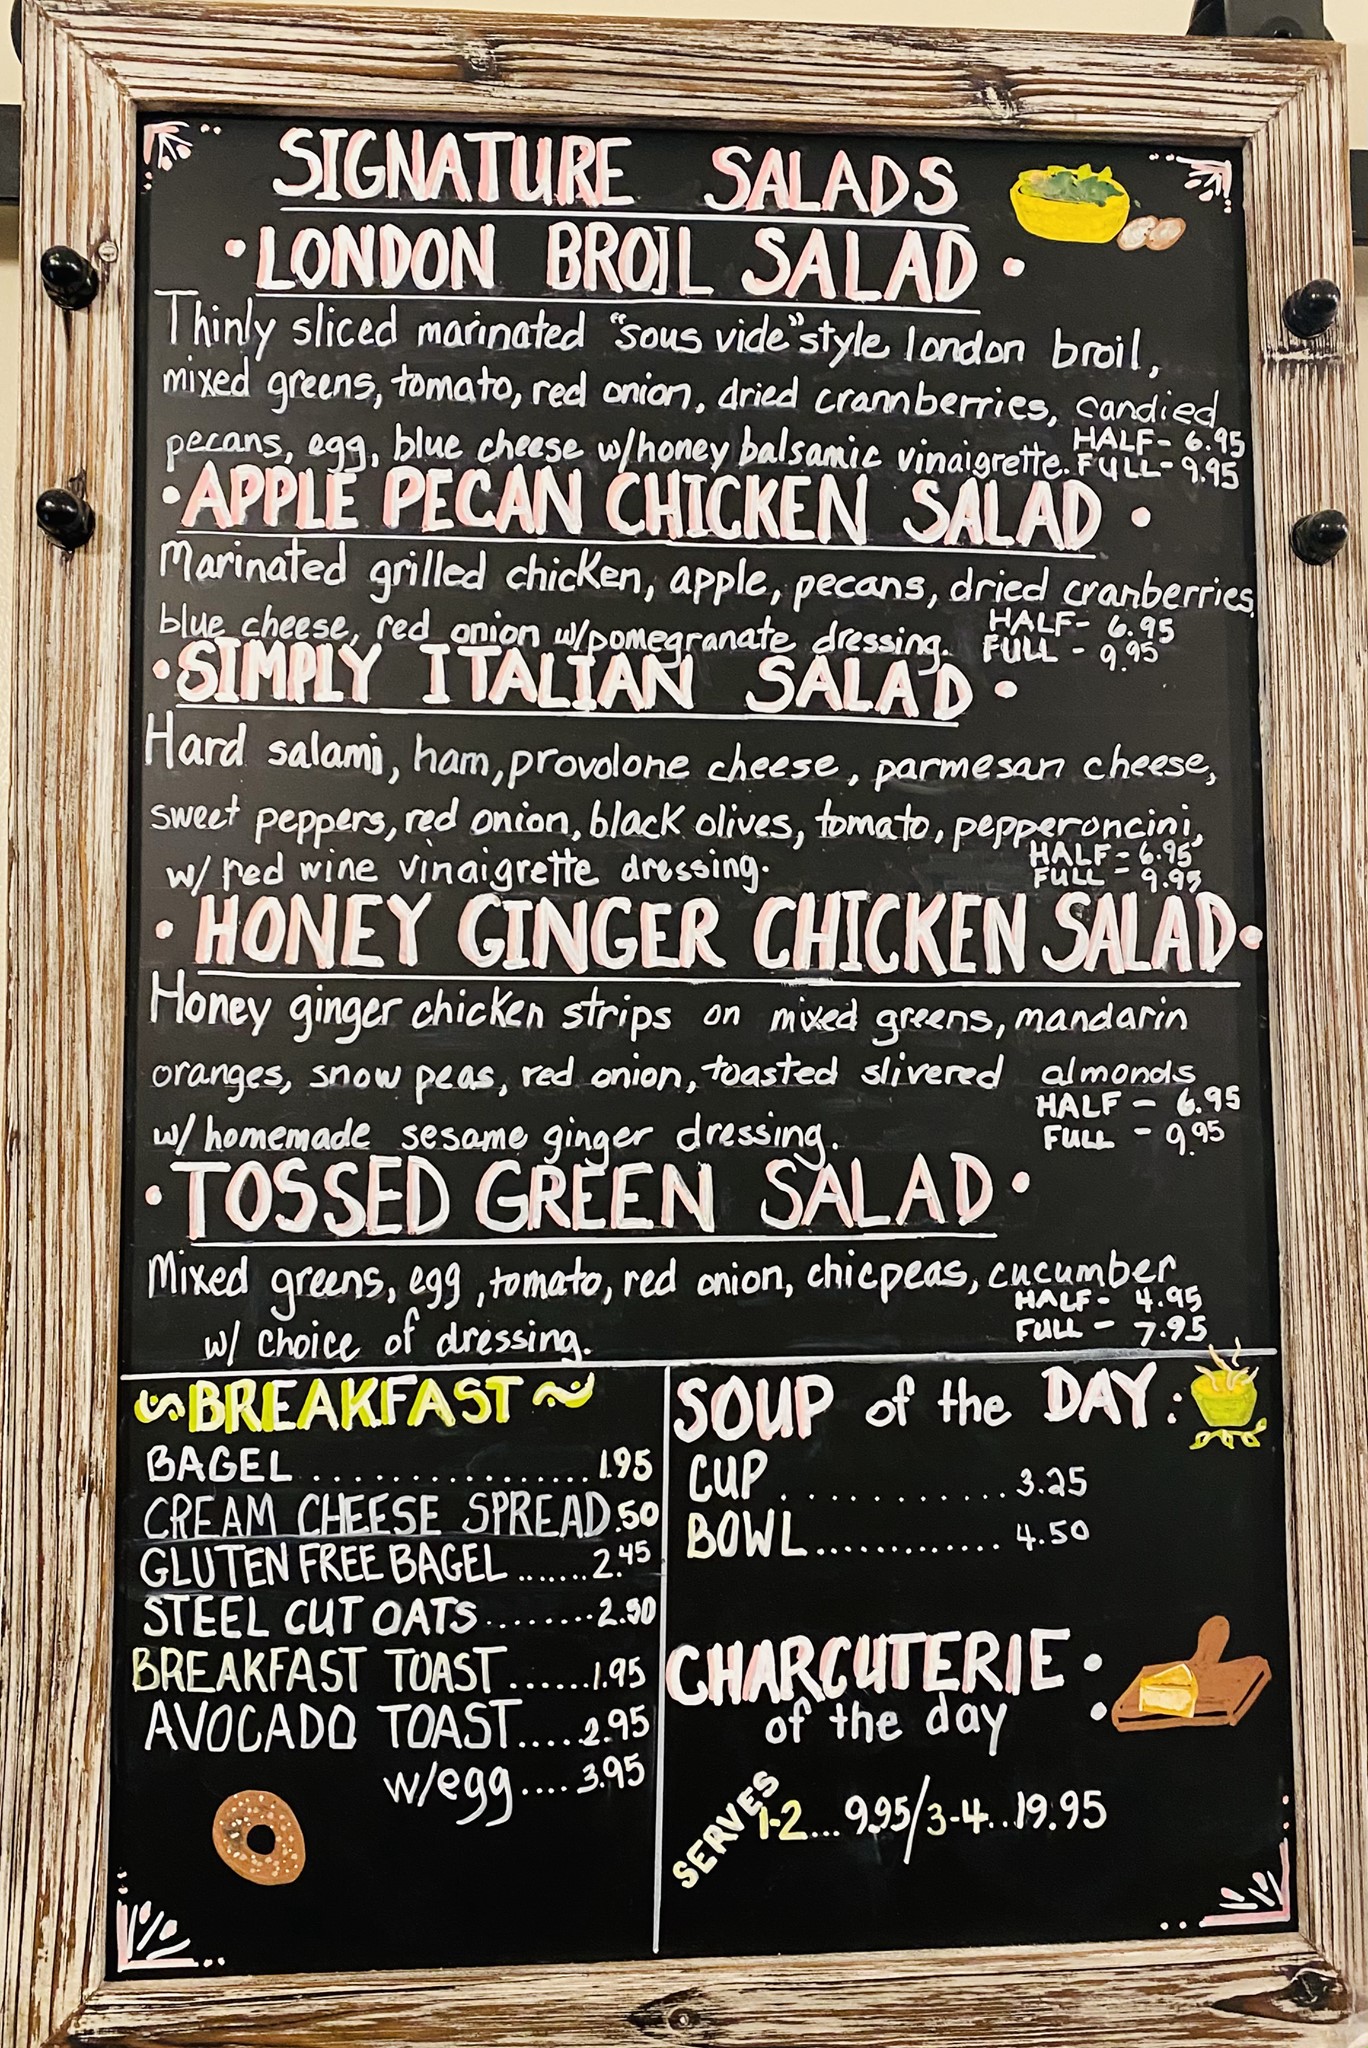 SIGNATURE SALADS
• LONDON BROIL SALAD •
Thinly sliced marinated "sous vide" style london broil,
mixed greens, tomato, red onion, dried crannberries, candied
pecans, egg, blue cheese w/honey balsamic vinaigrette.
HALF - 6.95
FULL - 9.95
• APPLE PECAN CHICKEN SALAD •
Marinated grilled chicken, apple, pecans, dried cranberries,
blue cheese, red onion w/pomegranate dressing.
HALF - 6.95
FULL - 9.95
• SIMPLY ITALIAN SALAD •
Hard salami, ham, provolone cheese, parmesan cheese,
sweet peppers, red onion, black olives, tomato, pepperoncini,
w/ red wine vinaigrette dressing.
HALF - 6.95
FULL - 9.95
• HONEY GINGER CHICKEN SALAD •
Honey ginger chicken strips on mixed greens, mandarin
oranges, snow peas, red onion, toasted slivered almonds
w/ homemade sesame ginger dressing.
HALF - 6.95
FULL - 9.95
• TOSSED GREEN SALAD •
Mixed greens, egg, tomato, red onion, chicpeas, cucumber
w/ choice of dressing.
HALF - 4.95
FULL - 7.95
~BREAKFAST~
BAGEL.................1.95
CREAM CHEESE SPREAD .50
GLUTEN FREE BAGEL.......2.45
STEEL CUT OATS........2.50
BREAKFAST TOAST......1.95
AVOCADO TOAST.....2.95
w/egg....3.95
SOUP of the DAY:
CUP............3.25
BOWL.............4.50
CHARCUTERIE:
of the day
SERVES 1-2...9.95/3-4...19.95